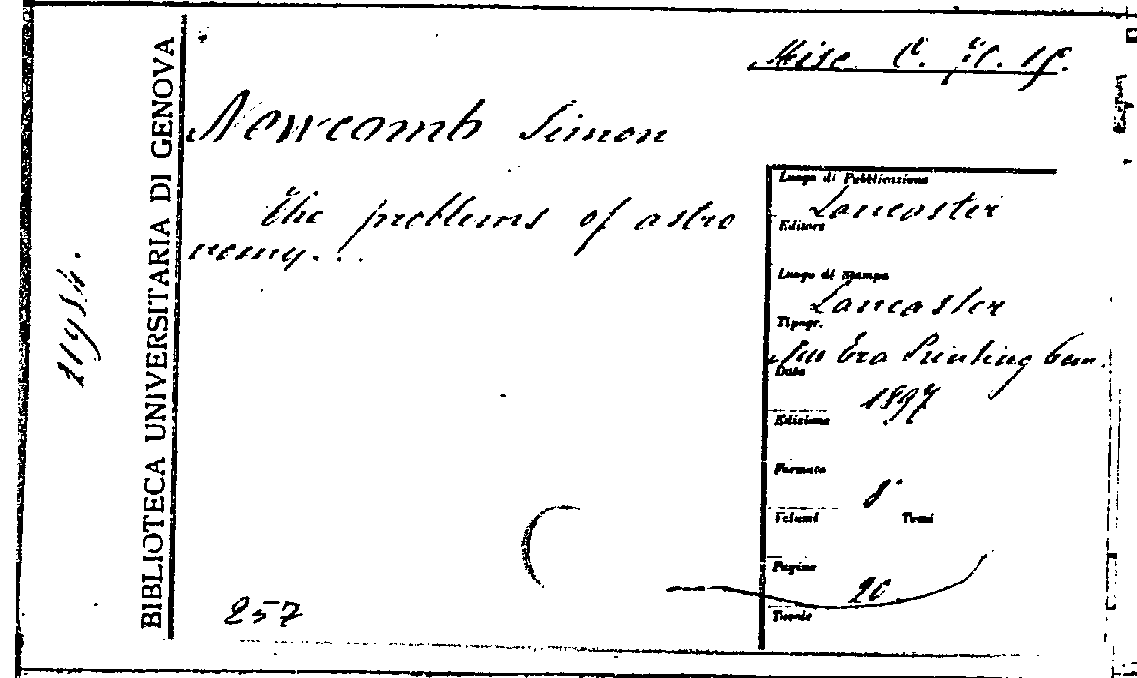 BIBLIOTECA UNIVERSITARIA DI GENOVA
Misc. C.
Newcomb Simon
The problems of astro
nomy...
Luogo di Pubblicazione
Lancaster
Editore
Luogo di stampa
Lancaster
Tipogr.
New Era Printing Com.
Data
1897
Edizione
Formato
8°
Volumi Tomi
Pagine
20
Tavole
257